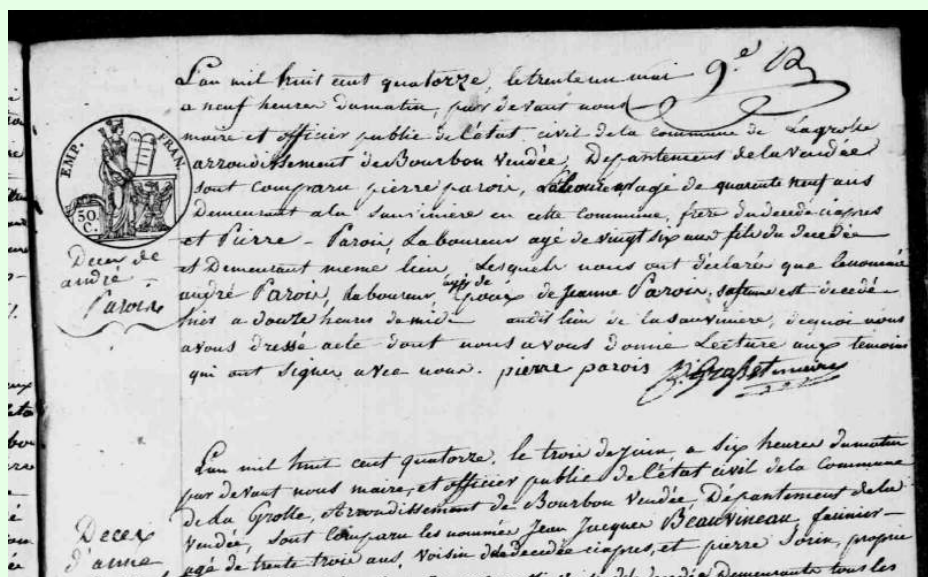 L'an mil huit cent quatorze, le trente un mai
a neuf heures du matin, par devant nous
maire et officier public de l'état civil de la commune de Lagrolle
arrondissement de Bourbon Vendée, Departement de la Vendée
sont comparu pierre parois, Laboureur, agé de quarente neuf ans
Demeurant a la Sauviniere en cette commune, frere du decedé ciapres
et Pierre - Parois, Laboureur agé de vingt six ans fils du decedée
et Demeurant meme lieu, Lesquels nous ont déclarés que lenommé
andré Parois, Laboureur, époux de Jeanne Parois, sa femme est decedé
hier a douze heures de midi audit lieu de la sauviniere, dequoi nous
avons dressé acte dont nous avons donné Lecture aux temoins
qui ont signer avec nous. pierre parois
EMP. FRAN
50
C.
Deces de
andré
Parois
L'an mil huit cent quatorze, le trois de juin, a six heures du matin
par devant nous maire, et officier public de l'état civil de la Commune
de La Grolle, Arrondissement de Bourbon Vendée, Département de la
Vendée, sont Comparu les nommés Jean Jacques Beauvineau, farinier
agé de trente trois ans, voisin de decedée ciapres, et pierre Sorin, propric
decedée Demeurants tous les
Deces
d'anne